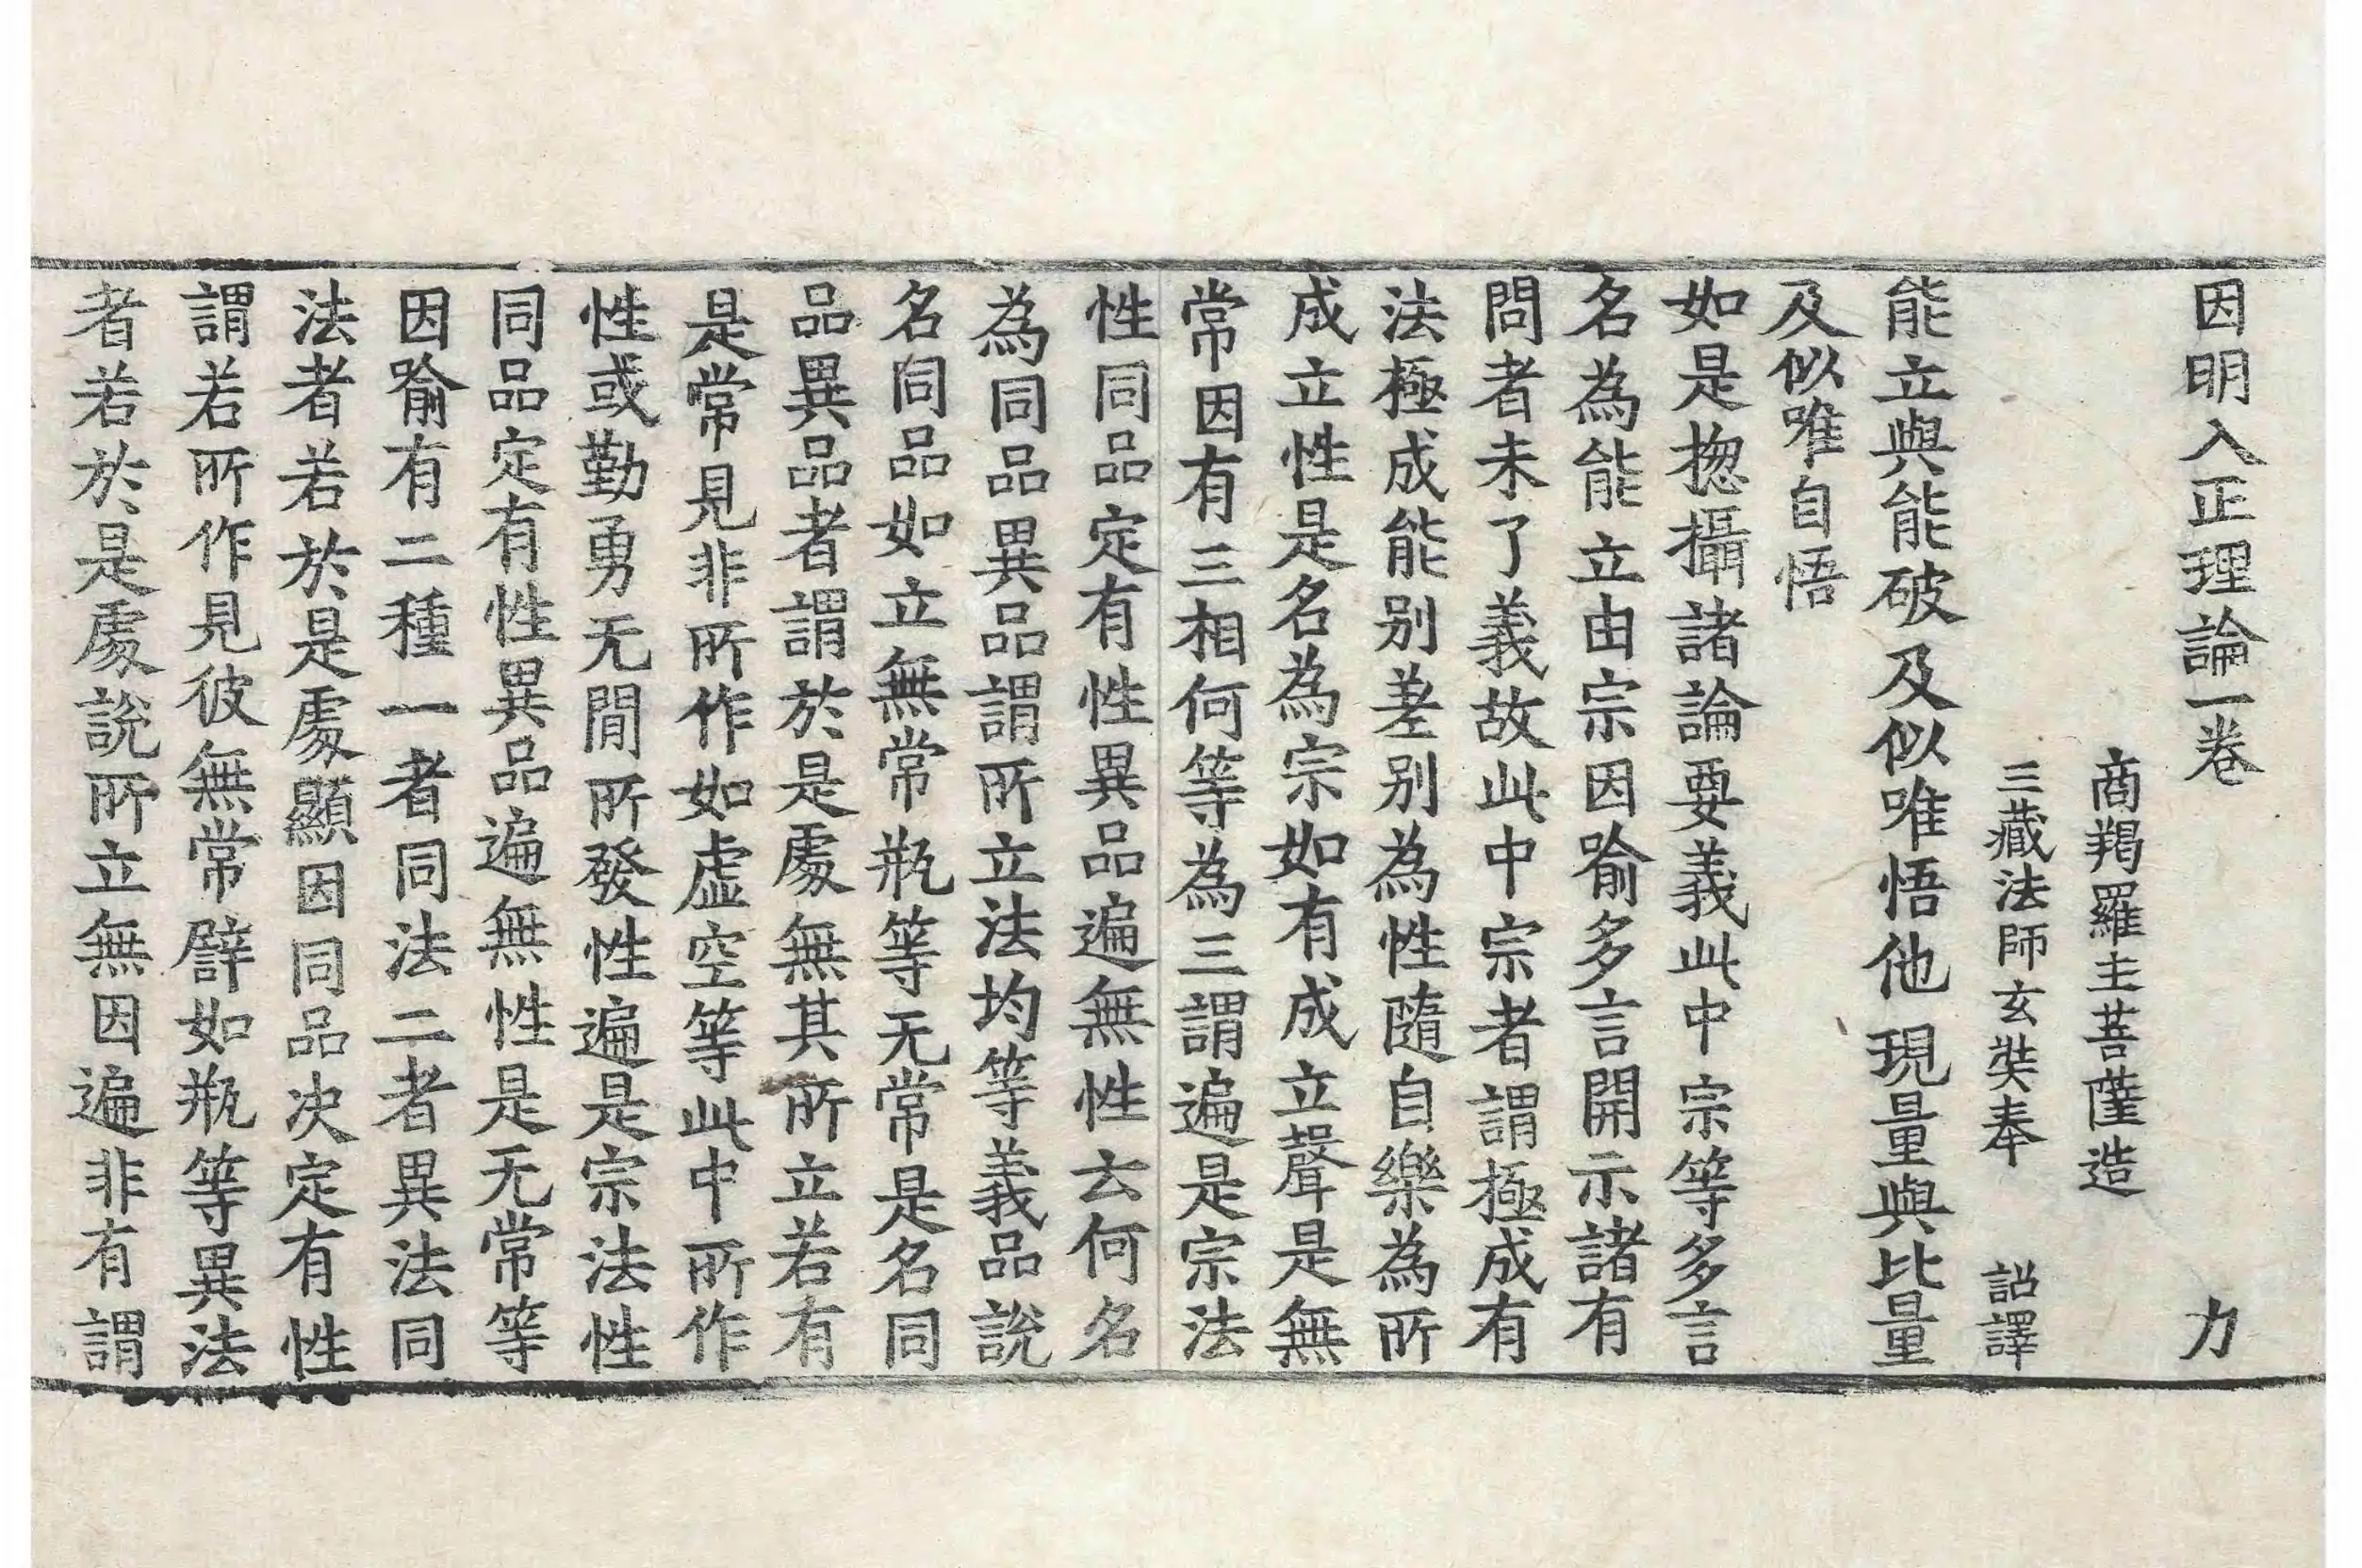 因明入正理論一卷　力
商羯羅主菩薩造
三藏法師玄奘奉　詔譯
能立與能破及似唯悟他現量與比量
及似唯自悟
如是揔攝諸論要義此中宗等多言
名為能立由宗因喻多言開示諸有
問者未了義故此中宗者謂極成有
法極成能別差別為性隨自樂為所
成立性是名為宗如有成立聲是無
常因有三相何等為三謂遍是宗法
性同品定有性異品遍無性云何名
為同品異品謂所立法均等義品說
名同品如立無常瓶等无常是名同
品異品者謂於是處無其所立若有
是常見非所作如虛空等此中所作
性或勤勇无間所發性遍是宗法性
同品定有性異品遍無性是无常等
因喻有二種一者同法二者異法同
法者若於是處顯因同品决定有性
謂若所作見彼無常譬如瓶等異法
者若於是處說所立無因遍非有謂